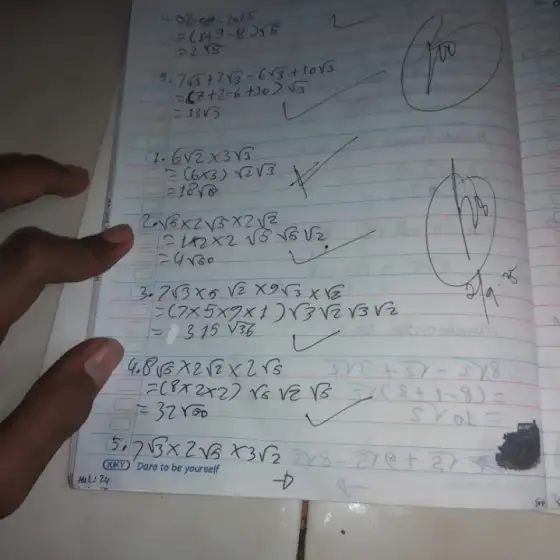 = (1+9-8)√5
= 2√5
9. 7√3 + 2√3 - 6√3 + 10√3
= (7+2-6+10) √3
= 13√3
100
1. 6√2 × 3√3
= (6×3) √2√3
= 18√6
2. √5 × 2√3 × 2√2
= 1×2×2 √5 √3 √2
= 4√30
3. 7√3 × 5 √2 × 9√3 × √2
= (7×5×9×1) √3 √2 √3 √2
= 315 √36
4. 8√5 × 2√2 × 2√5
= (8×2×2) √5 √2 √5
= 32√50
5. 7√3 × 2√5 × 3√2
KKY Dare to be yourself